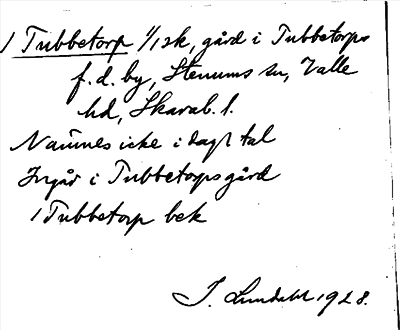 1 Tubbetorp 1/1 sk, gård i Tubbetorps
f.d. by, Stenums sn, Valle
hd, Skarab. l.
Namnes icke i dagl tal
Ingår i Tubbetorpsgård
1 Tubbetorp bek
I. Lundahl 1928.